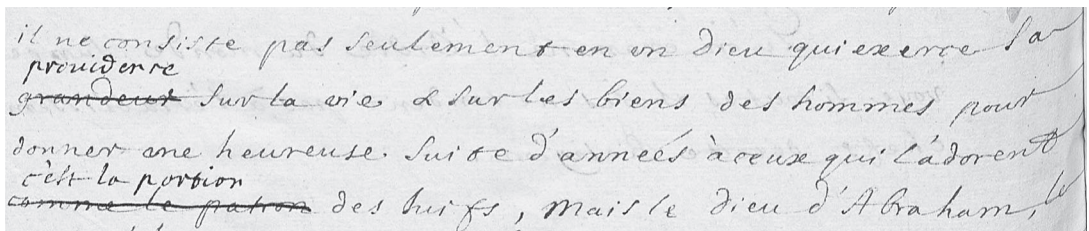 il ne consiste pas seulement en un dieu qui exerce sa
providence
grandeur sur la vie & sur les biens des hommes pour
donner une heureuse suite d'années à ceux qui l'adorent
c'est la portion
comme le patron des Juifs, Mais le Dieu d'Abraham, le